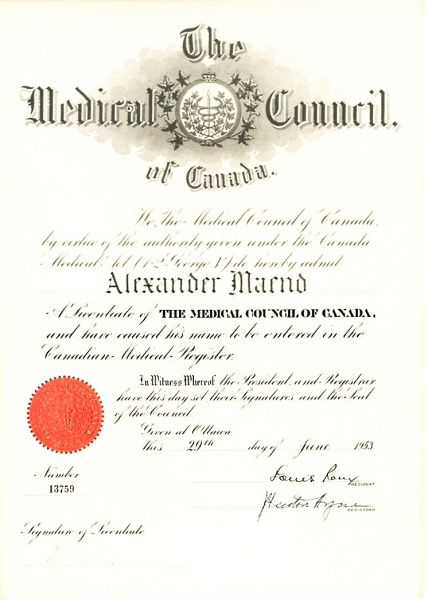 The
Medical Council.
of Canada.
We, the Medical Council of Canada,
by virtue of the authority given under the Canada
Medical Act (1-2 George V) do hereby admit
Alexander Maend
A Licentiate of THE MEDICAL COUNCIL OF CANADA,
and have caused his name to be entered in the
Canadian Medical Register.
In Witness Whereof the President, and Registrar
have this day set their Signatures and the Seal
of the Council
Given at Ottawa
this 29th day of June 1953
Louis Roux
PRESIDENT
Number
13759
REGISTRAR
Signature of Licentiate